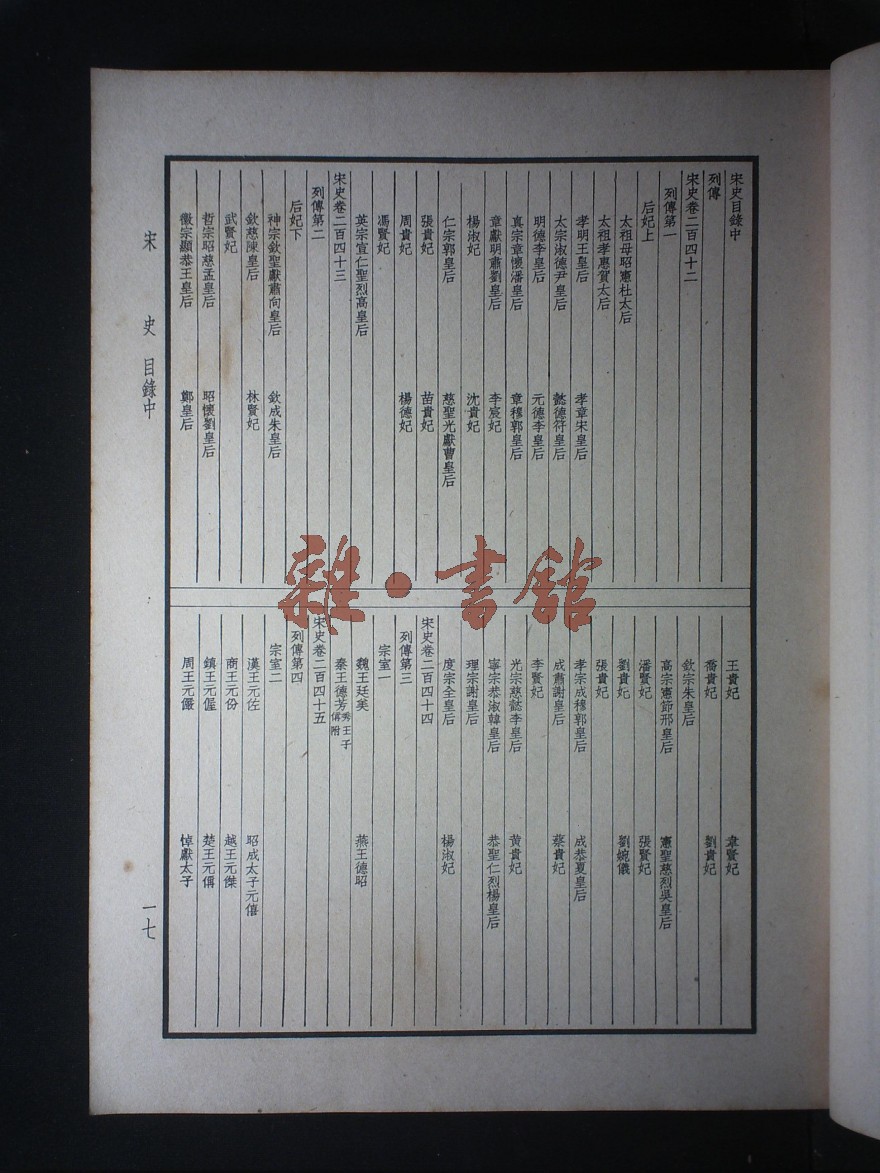 宋史目錄中
列傳
宋史卷二百四十二
列傳第一
后妃上
太祖母昭憲杜太后
太祖孝惠賀太后
孝明王皇后 孝章宋皇后
太宗淑德尹皇后 懿德符皇后
明德李皇后 元德李皇后
真宗章懷潘皇后 章穆郭皇后
章獻明肅劉皇后 李宸妃
楊淑妃 沈貴妃
仁宗郭皇后 慈聖光獻曹皇后
張貴妃 苗貴妃
周貴妃 楊德妃
馮賢妃
英宗宣仁聖烈高皇后
宋史卷二百四十三
列傳第二
后妃下
神宗欽聖獻肅向皇后 欽成朱皇后
欽慈陳皇后 林賢妃
武賢妃
哲宗昭慈孟皇后 昭懷劉皇后
徽宗顯恭王皇后 鄭皇后
王貴妃 韋賢妃
喬貴妃 劉貴妃
欽宗朱皇后
高宗憲節邢皇后 憲聖慈烈吳皇后
潘賢妃 張賢妃
劉貴妃 劉婉儀
張貴妃
孝宗成穆郭皇后 成恭夏皇后
成肅謝皇后 蔡貴妃
李賢妃
光宗慈懿李皇后 黃貴妃
寧宗恭淑韓皇后 恭聖仁烈楊皇后
理宗謝皇后
度宗全皇后 楊淑妃
宋史卷二百四十四
列傳第三
宗室一
魏王廷美 燕王德昭
秦王德芳 秀王子偁附
宋史卷二百四十五
列傳第四
宗室二
漢王元佐 昭成太子元僖
商王元份 越王元傑
鎮王元偓 楚王元偁
周王元儼 悼獻太子
宋 史 目錄中
一七
雜·書館